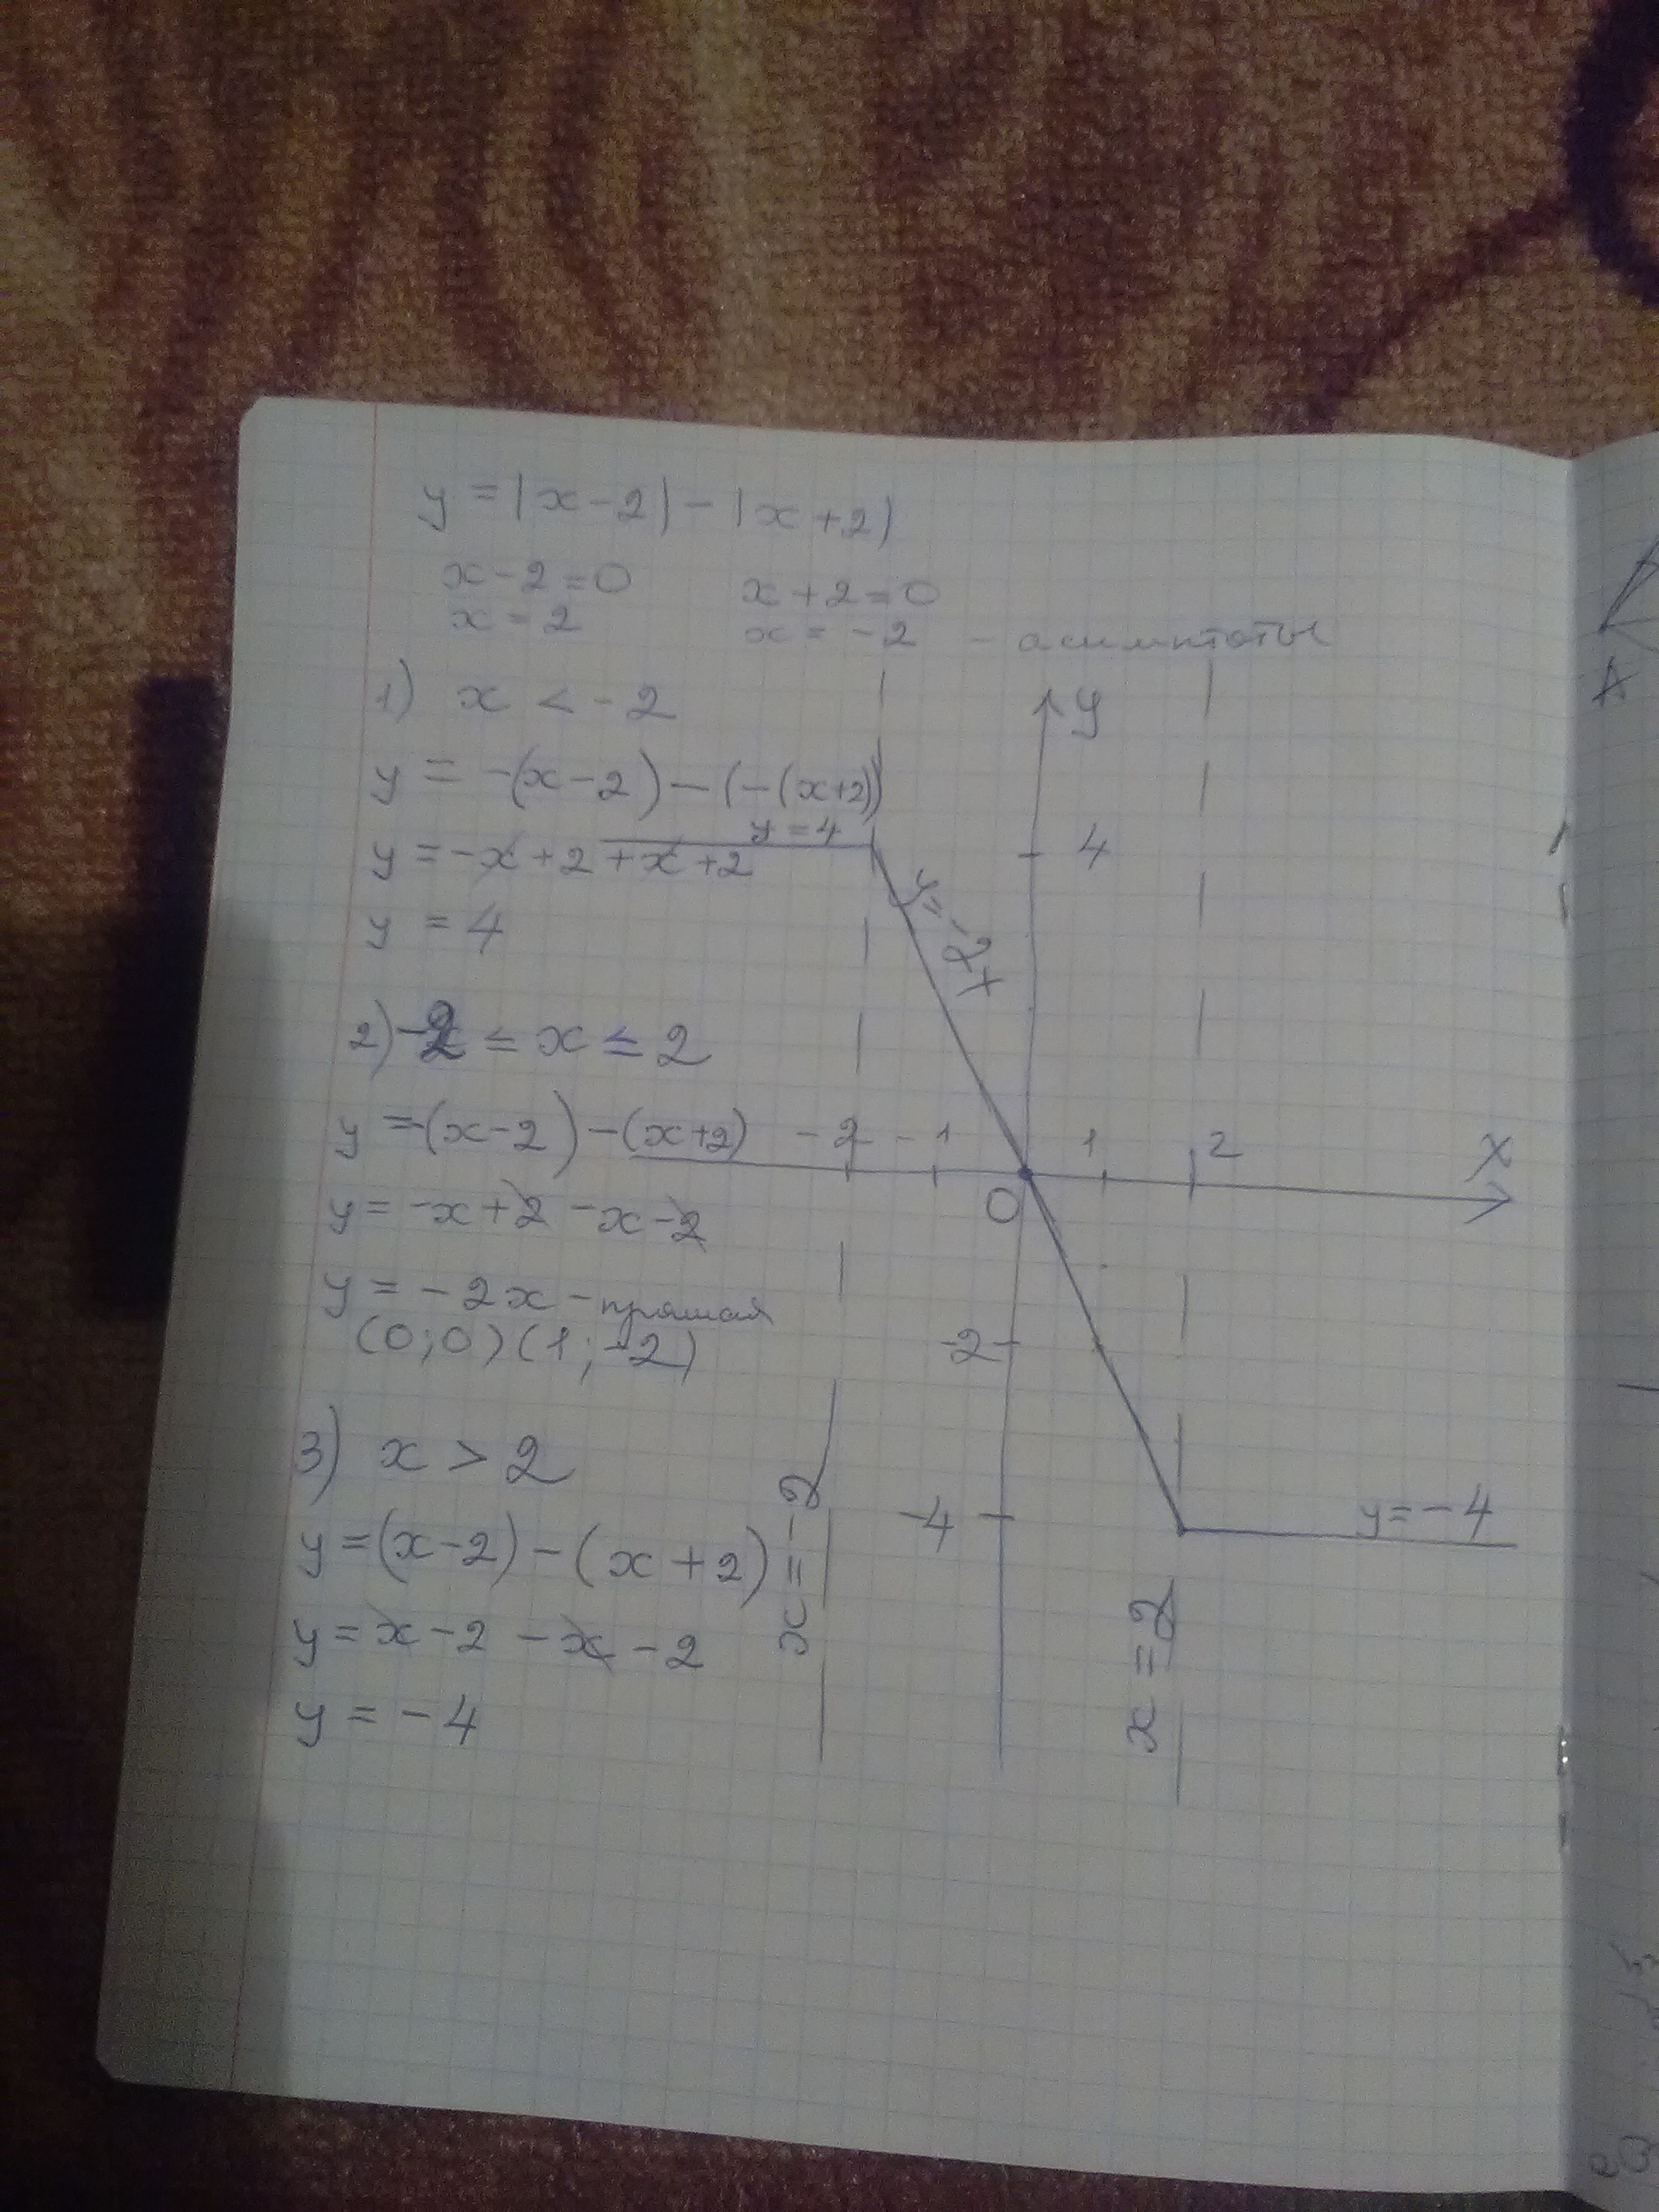 y = |x-2| - |x+2|
x-2=0 x+2=0
x=2 x=-2 - асимптоты
1) x < -2
y = -(x-2) - (-(x+2))
y = -x+2+x+2
y = 4
2) -2 ≤ x ≤ 2
y = -(x-2) - (x+2)
y = -x+2 -x-2
y = -2x - прямая
(0;0) (1;-2)
3) x > 2
y = (x-2) - (x+2)
y = x-2 -x-2
y = -4
y
4
y=4
y=-2x
-2 -1 1 2 x
0
-2
-4
y=-4
x=-2
x=2
A